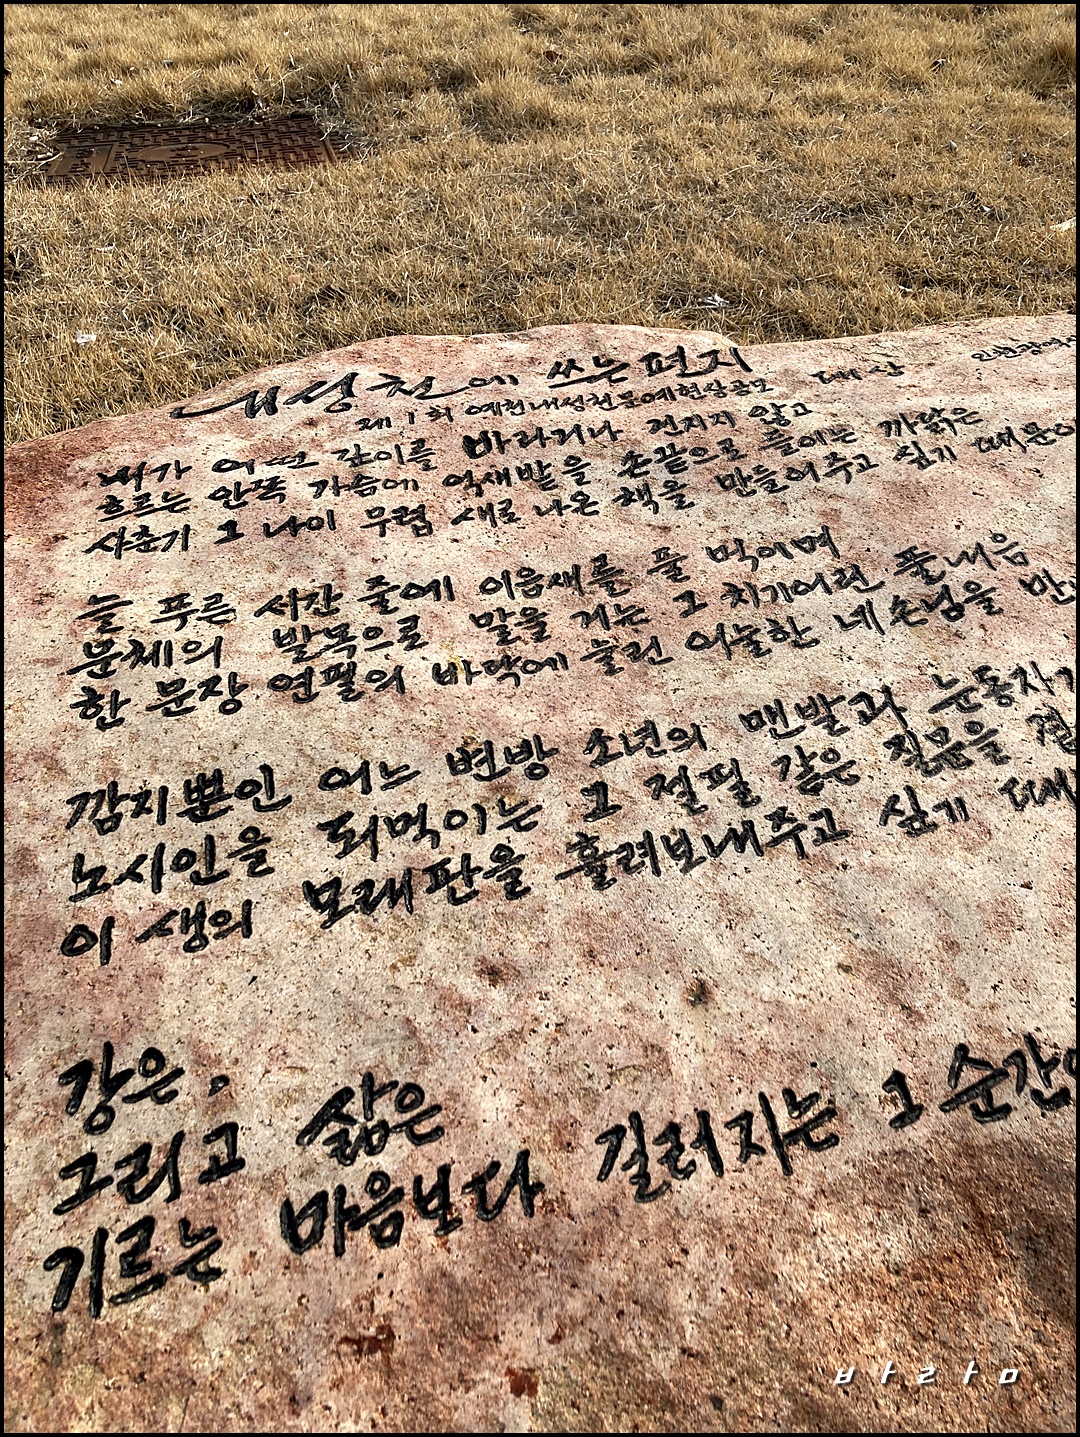 내성천에 쓰는 편지
제1회 예천내성천문예현상공모 대상
내가 어떤 강이를 바라거나 건지지 않고
흐르는 안쪽 가슴에 억새밭을 손끝으로 풀이는 까닭은
사춘기 그 나이 무렵 새로 나온 책을 만들어 주고 싶기 때문이
늘 푸른 시간 줄에 이음새를 풀 먹이며
문체의 발목으로 말을 거는 그 치기어린 풀내음
한 문장 연필의 바닥에 눌린 어눌한 네 손님을
깜지뿐인 어느 변방 소년의 맨발과 눈동자
노시인을 되먹이는 그 절필 같은 질문을
이 생의 모래판을 흘려보내주고 싶기 때
강은.
그리고 삶은
기르는 마음보다 길러지는 그 순간
바라미